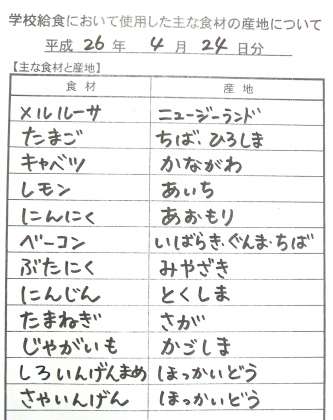 学校給食において使用した主な食材の産地について
平成 26 年 4 月 24 日分
【主な食材と産地】
食材 産地
メルルーサ ニュージーランド
たまご ちば、ひろしま
キャベツ かながわ
レモン あいち
にんにく あおもり
ベーコン いばらき、ぐんま、ちば
ぶたにく みやざき
にんじん とくしま
たまねぎ さが
じゃがいも かごしま
しろいんげんまめ ほっかいどう
さやいんげん ほっかいどう